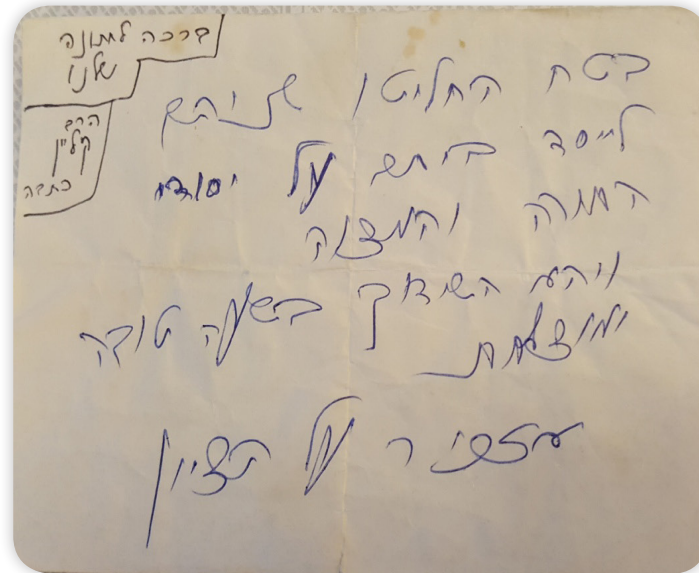 ברכה לחתונה
שלנו
הרב
קליין
כתבה
בטח החליטו שניהם
לייסד ביתם על יסודי
התורה והמצוה
ויהא השידוך בשעה טובה
ומוצלחת
אזכיר על הציון